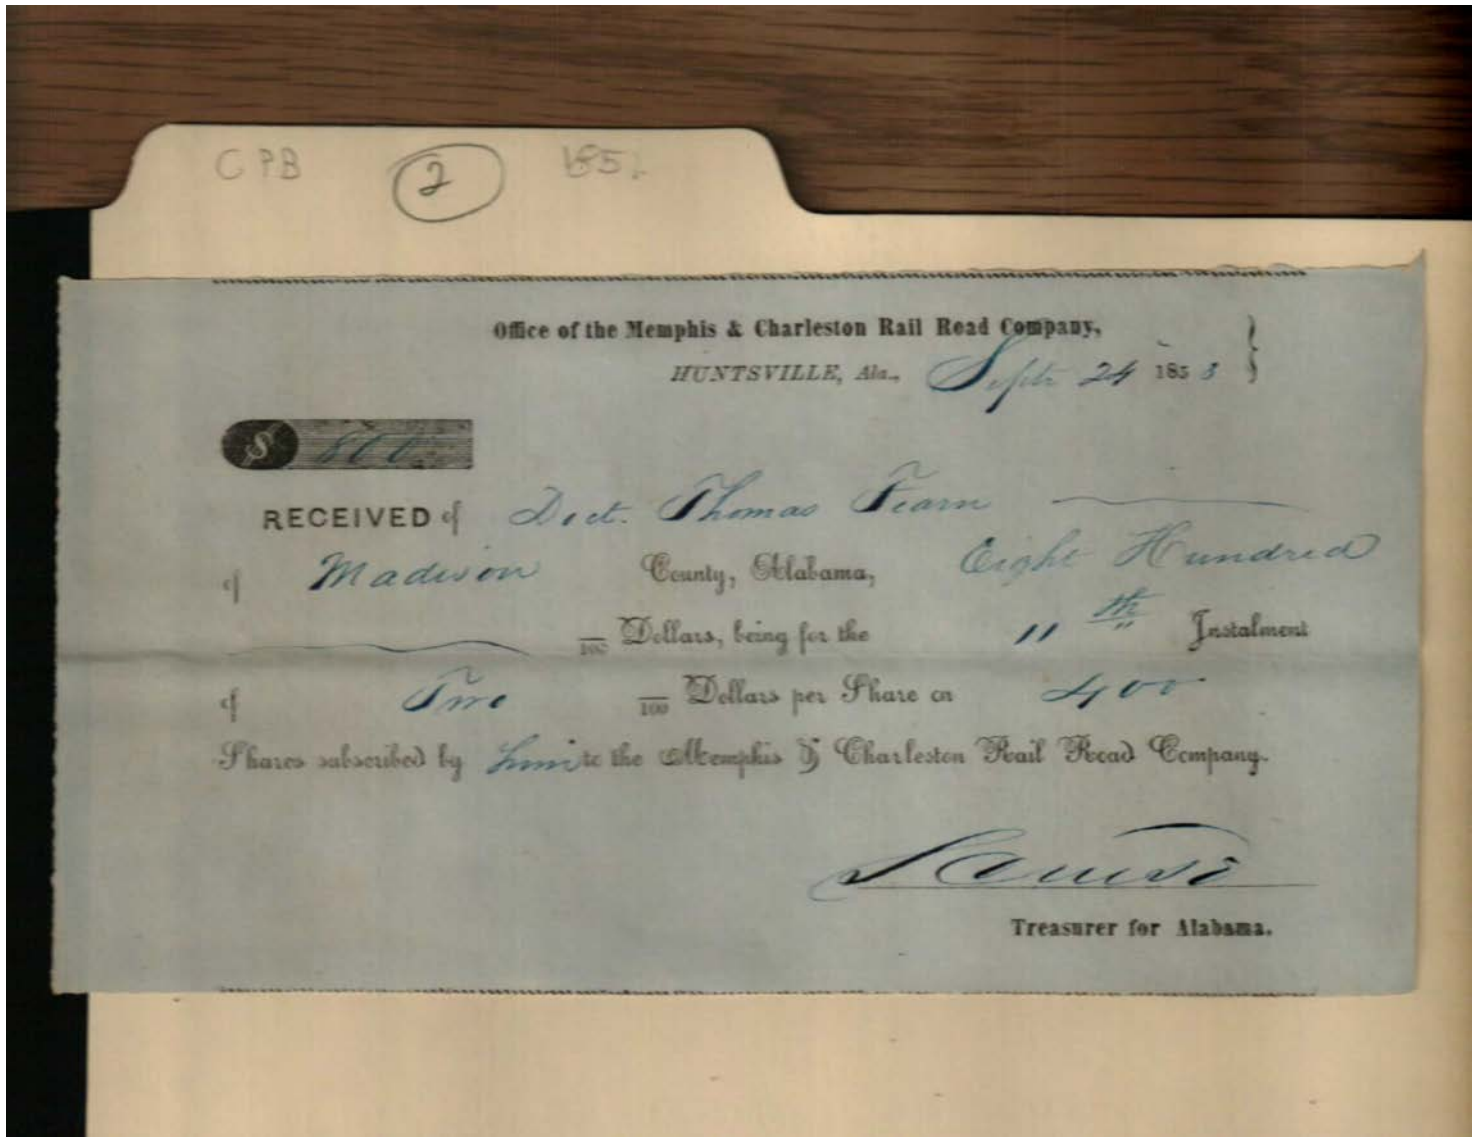 CPB 2 185
Office of the Memphis & Charleston Rail Road Company,
HUNTSVILLE, Ala., Septr 24 1853
$ 800
RECEIVED of Doct. Thomas Fearn
of Madison County, Alabama, Eight Hundred
/100 Dollars, being for the 11th Instalment
of Two /100 Dollars per Share on 400
Shares subscribed by him to the Memphis & Charleston Rail Road Company.
Treasurer for Alabama.